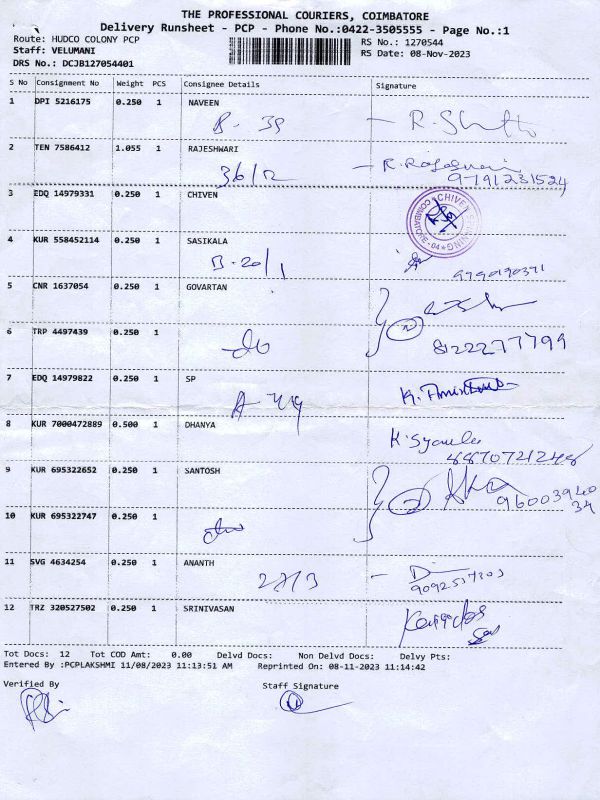 THE PROFESSIONAL COURIERS, COIMBATORE
Delivery Runsheet - PCP - Phone No.:0422-3505555 - Page No.:1
Route: HUDCO COLONY PCP
RS No.: 1270544
Staff: VELUMANI
RS Date: 08-Nov-2023
DRS No.: DCJB127054401
S No Consignment No Weight PCS Consignee Details Signature
1 DPI 5216175 0.250 1 NAVEEN
B-39
2 TEN 7586412 1.055 1 RAJESHWARI
36/2 9791231524
3 EDQ 14979331 0.250 1 CHIVEN
4 KUR 558452114 0.250 1 SASIKALA
B-20/1
5 CNR 1637054 0.250 1 GOVARTAN
6 TRP 4497439 0.250 1
do 8122277799
7 EDQ 14979822 0.250 1 SP
8 KUR 7000472889 0.500 1 DHANYA
K. Syamla
8870721248
9 KUR 695322652 0.250 1 SANTOSH
9600394034
10 KUR 695322747 0.250 1
11 SVG 4634254 0.250 1 ANANTH
12 TRZ 320527502 0.250 1 SRINIVASAN
Tot Docs: 12 Tot COD Amt: 0.00 Delvd Docs: Non Delvd Docs: Delvy Pts:
Entered By :PCPLAKSHMI 11/08/2023 11:13:51 AM Reprinted On: 08-11-2023 11:14:42
Verified By Staff Signature